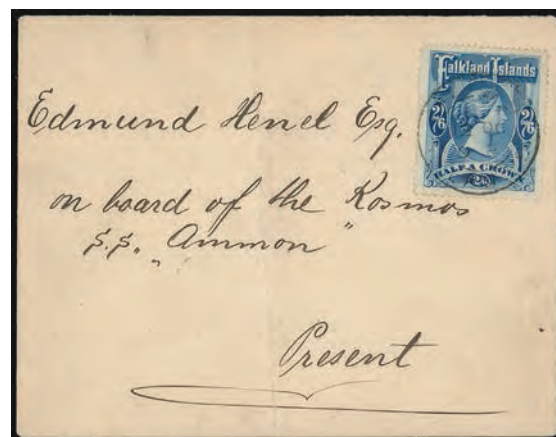 Falkland Islands
2/6 2/6
HALF A CROWN
2/6
Edmund Henel Esq.
on board of the Kosmos
S.S. „Ammon"
Present